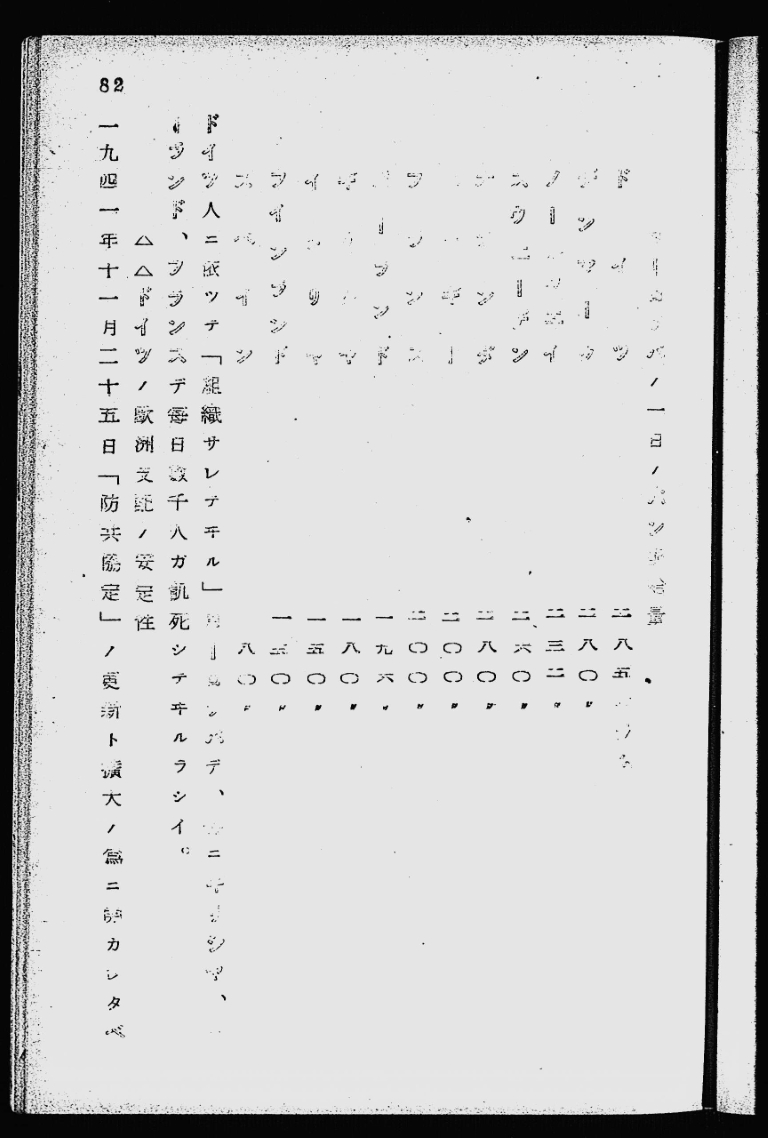 82
ヨーロツパノ一日ノパン配給量
ドイツ 二八五グラム
デンマーク 二八〇〃
ノールウエイ 二三二〃
スウエーデン 二六〇〃
オランダ 二八〇〃
ベルギー 二〇〇〃
フランス 二〇〇〃
ポーランド 一九六〃
ギリシヤ 一八〇〃
イタリヤ 一五〇〃
フインランド 一五〇〃
スペイン 八〇〃
ドイツ人ニ依ツテ「組織サレテヰル」ヨーロツパデ、
ーランド、フランスデ毎日数千人ガ飢死シテヰルラシイ。
△△ドイツノ欧洲支配ノ安定性
一九四一年十一月二十五日「防共協定」ノ更新ト擴大ノ為ニ開カレタベ